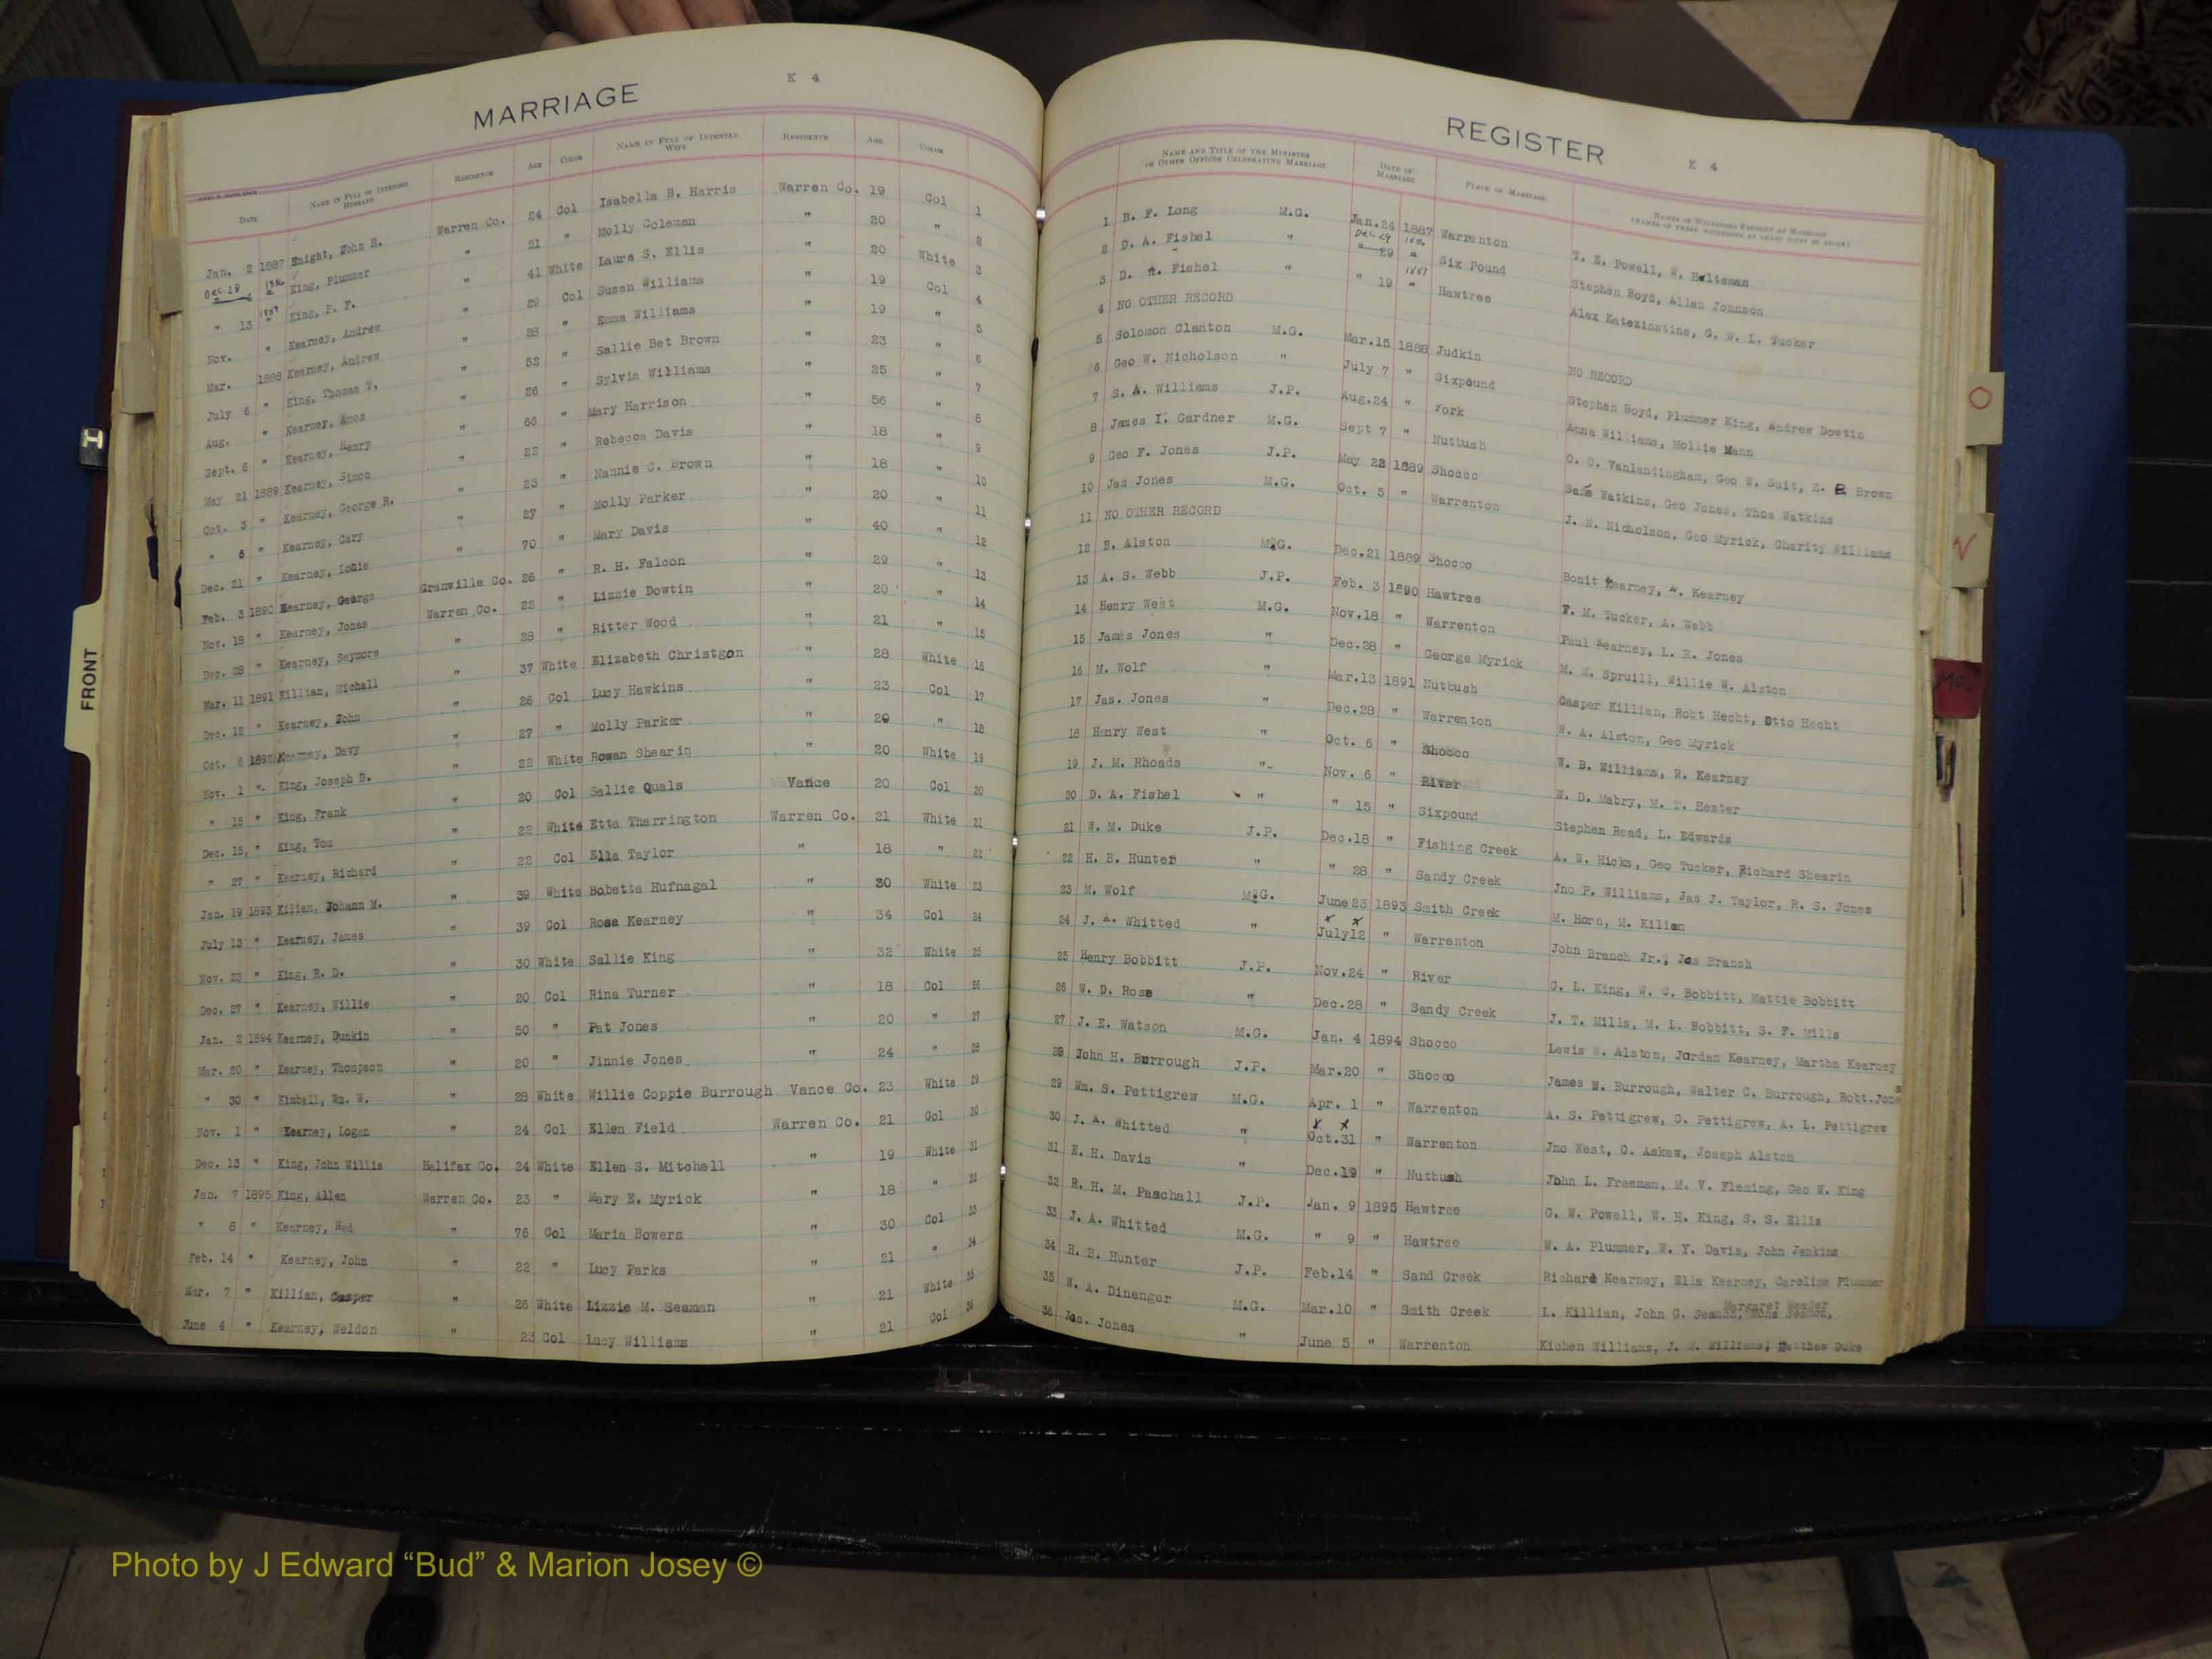 K 4
MARRIAGE
DATE NAME IN FULL OF INTENDED HUSBAND RESIDENCE AGE COLOR NAME IN FULL OF INTENDED WIFE RESIDENCE AGE COLOR
Jan. 2 1887 Knight, John B. Warren Co. 24 Col Isabella B. Harris Warren Co. 19 Col 1
Dec. 29 1886 King, Plummer " 21 " Molly Coleman " 20 " 2
" 13 1887 King, P. F. " 41 White Laura S. Ellis " 20 White 3
Nov. " Kearney, Andrew " 29 Col Susan Williams " 19 Col 4
Mar. 1888 Kearney, Andrew " 28 " Emma Williams " 19 " 5
July 6 " King, Thomas T. " 52 " Sallie Bet Brown " 23 " 6
Aug. " Kearney, Amos " 26 " Sylvia Williams " 25 " 7
Sept. 6 " Kearney, Henry " 66 " Mary Harrison " 56 " 8
May 21 1889 Kearney, Simon " 22 " Rebecca Davis " 18 " 9
Oct. 3 " Kearney, George R. " 23 " Nannie C. Brown " 18 " 10
" 6 " Kearney, Cary " 27 " Molly Parker " 20 " 11
Dec. 21 " Kearney, Louie " 70 " Mary Davis " 40 " 12
Feb. 3 1890 Kearney, George Granville Co. 26 " R. H. Falcon " 29 " 13
Nov. 18 " Kearney, Jones Warren Co. 22 " Lizzie Dowtin " 20 " 14
Dec. 28 " Kearney, Seymore " 28 " Ritter Wood " 21 " 15
Mar. 11 1891 Killian, Michall " 37 White Elizabeth Christgon " 28 White 16
Dec. 12 " Kearney, John " 26 Col Lucy Hawkins " 23 Col 17
Oct. 6 1892 Kearney, Davy " 27 " Molly Parker " 20 " 18
Nov. 1 " King, Joseph D. " 22 White Rowan Shearin " 20 White 19
" 15 " King, Frank " 20 Col Sallie Quals Vance 20 Col 20
Dec. 15, " King, Tom " 22 White Etta Tharrington Warren Co. 21 White 21
" 27 " Kearney, Richard " 22 Col Ella Taylor " 18 " 22
Jan. 19 1893 Kilian, Johann M. " 39 White Babetta Hufnagal " 30 White 23
July 13 " Kearney, James " 39 Col Rosa Kearney " 34 Col 24
Nov. 23 " King, R. D. " 30 White Sallie King " 32 White 25
Dec. 27 " Kearney, Willie " 20 Col Rina Turner " 18 Col 26
Jan. 2 1894 Kearney, Dunkin " 50 " Pat Jones " 20 " 27
Mar. 20 " Kearney, Thompson " 20 " Jinnie Jones " 24 " 28
" 30 " Kimball, Wm. W. " 28 White Willie Coppie Burrough Vance Co. 23 White 29
Nov. 1 " Kearney, Logan " 24 Col Ellen Field Warren Co. 21 Col 30
Dec. 13 " King, John Willis Halifax Co. 24 White Ellen S. Mitchell " 19 White 31
Jan. 7 1895 King, Allen Warren Co. 23 " Mary E. Myrick " 18 " 32
" 8 " Kearney, Ned " 76 Col Maria Bowers " 30 Col 33
Feb. 14 " Kearney, John " 22 " Lucy Parks " 21 " 34
Mar. 7 " Killian, Casper " 26 White Lizzie M. Seaman " 21 White 35
June 4 " Kearney, Weldon " 23 Col Lucy Williams " 21 Col 36
REGISTER K 4
NAME AND TITLE OF THE MINISTER OR OTHER OFFICER CELEBRATING MARRIAGE DATE OF MARRIAGE PLACE OF MARRIAGE NAMES OF WITNESSES PRESENT AT MARRIAGE
1 B. F. Long M.G. Jan. 24 1887 Warrenton T. E. Powell, W. Holtzman
2 D. A. Fishel " Dec 29 1886 Six Pound Stephen Boyd, Allen Johnson
3 D. A. Fishel " " 19 1887 Hawtree Alex Katezinstine, G. W. L. Tucker
4 NO OTHER RECORD NO RECORD
5 Solomon Clanton M.G. Mar. 15 1888 Judkin
6 Geo W. Nicholson " July 7 " Sixpound Stephen Boyd, Plummer King, Andrew Dowtin
7 S. A. Williams J.P. Aug. 24 " Fork Anna Williams, Mollie Mann
8 James I. Gardner M.G. Sept 7 " Nutbush O. O. Vanlandingham, Geo W. Suit, Z. R Brown
9 Geo F. Jones J.P. May 22 1889 Shocco Sam Watkins, Geo Jones, Thos Watkins
10 Jas Jones M.G. Oct. 5 " Warrenton J. N. Nicholson, Geo Myrick, Charity Williams
11 NO OTHER RECORD
12 B. Alston M.G. Dec. 21 1889 Shocco Bonit Kearney, A. Kearney
13 A. S. Webb J.P. Feb. 3 1890 Hawtree F. M. Tucker, A. Webb
14 Henry West M.G. Nov. 18 " Warrenton Paul Kearney, L. R. Jones
15 James Jones " Dec. 28 " George Myrick M. M. Spruill, Willie W. Alston
16 M. Wolf " Mar. 13 1891 Nutbush Casper Killian, Robt Hecht, Otto Hecht
17 Jas. Jones " Dec. 28 " Warrenton W. A. Alston, Geo Myrick
18 Henry West " Oct. 6 " Shocco W. B. Williams, R. Kearney
19 J. M. Rhoads " Nov. 6 " River W. D. Mabry, M. T. Hester
20 D. A. Fishel " " 15 " Sixpound Stephen Read, L. Edwards
21 W. M. Duke J.P. Dec. 18 " Fishing Creek A. W. Hicks, Geo Tucker, Richard Shearin
22 H. B. Hunter " " 28 " Sandy Creek Jno P. Williams, Jas J. Taylor, R. S. Jones
23 M. Wolf M.G. June 23 1893 Smith Creek M. Horn, M. Kilian
24 J. A. Whitted " x x July 12 " Warrenton John Branch Jr., Jas Branch
25 Henry Bobbitt J.P. Nov. 24 " River O. L. King, W. C. Bobbitt, Mattie Bobbitt
26 W. D. Rose " Dec. 28 " Sandy Creek J. T. Mills, M. L. Bobbitt, S. F. Mills
27 J. E. Watson M.G. Jan. 4 1894 Shocco Lewis W. Alston, Jordan Kearney, Martha Kearney
28 John H. Burrough J.P. Mar. 20 " Shocco James W. Burrough, Walter C. Burrough, Robt. Jones
29 Wm. S. Pettigrew M.G. Apr. 1 " Warrenton A. S. Pettigrew, C. Pettigrew, A. L. Pettigrew
30 J. A. Whitted " x x Oct. 31 " Warrenton Jno West, C. Askew, Joseph Alston
31 E. H. Davis " Dec. 19 " Nutbush John L. Freeman, M. V. Fleming, Geo W. King
32 R. H. M. Paschall J.P. Jan. 9 1895 Hawtree G. W. Powell, W. H. King, S. S. Ellis
33 J. A. Whitted M.G. " 9 " Hawtree W. A. Plummer, W. Y. Davis, John Jenkins
34 H. B. Hunter J.P. Feb. 14 " Sand Creek Richard Kearney, Ella Kearney, Caroline Plummer
35 W. A. Dinenger M.G. Mar. 10 " Smith Creek L. Killian, John G. Seamon, Margaret
36 Jas. Jones " June 5 " Warrenton Kichen Williams, J. Williams, Matthew Duke
FRONT
O
N
Mc
Photo by J Edward “Bud” & Marion Josey ©